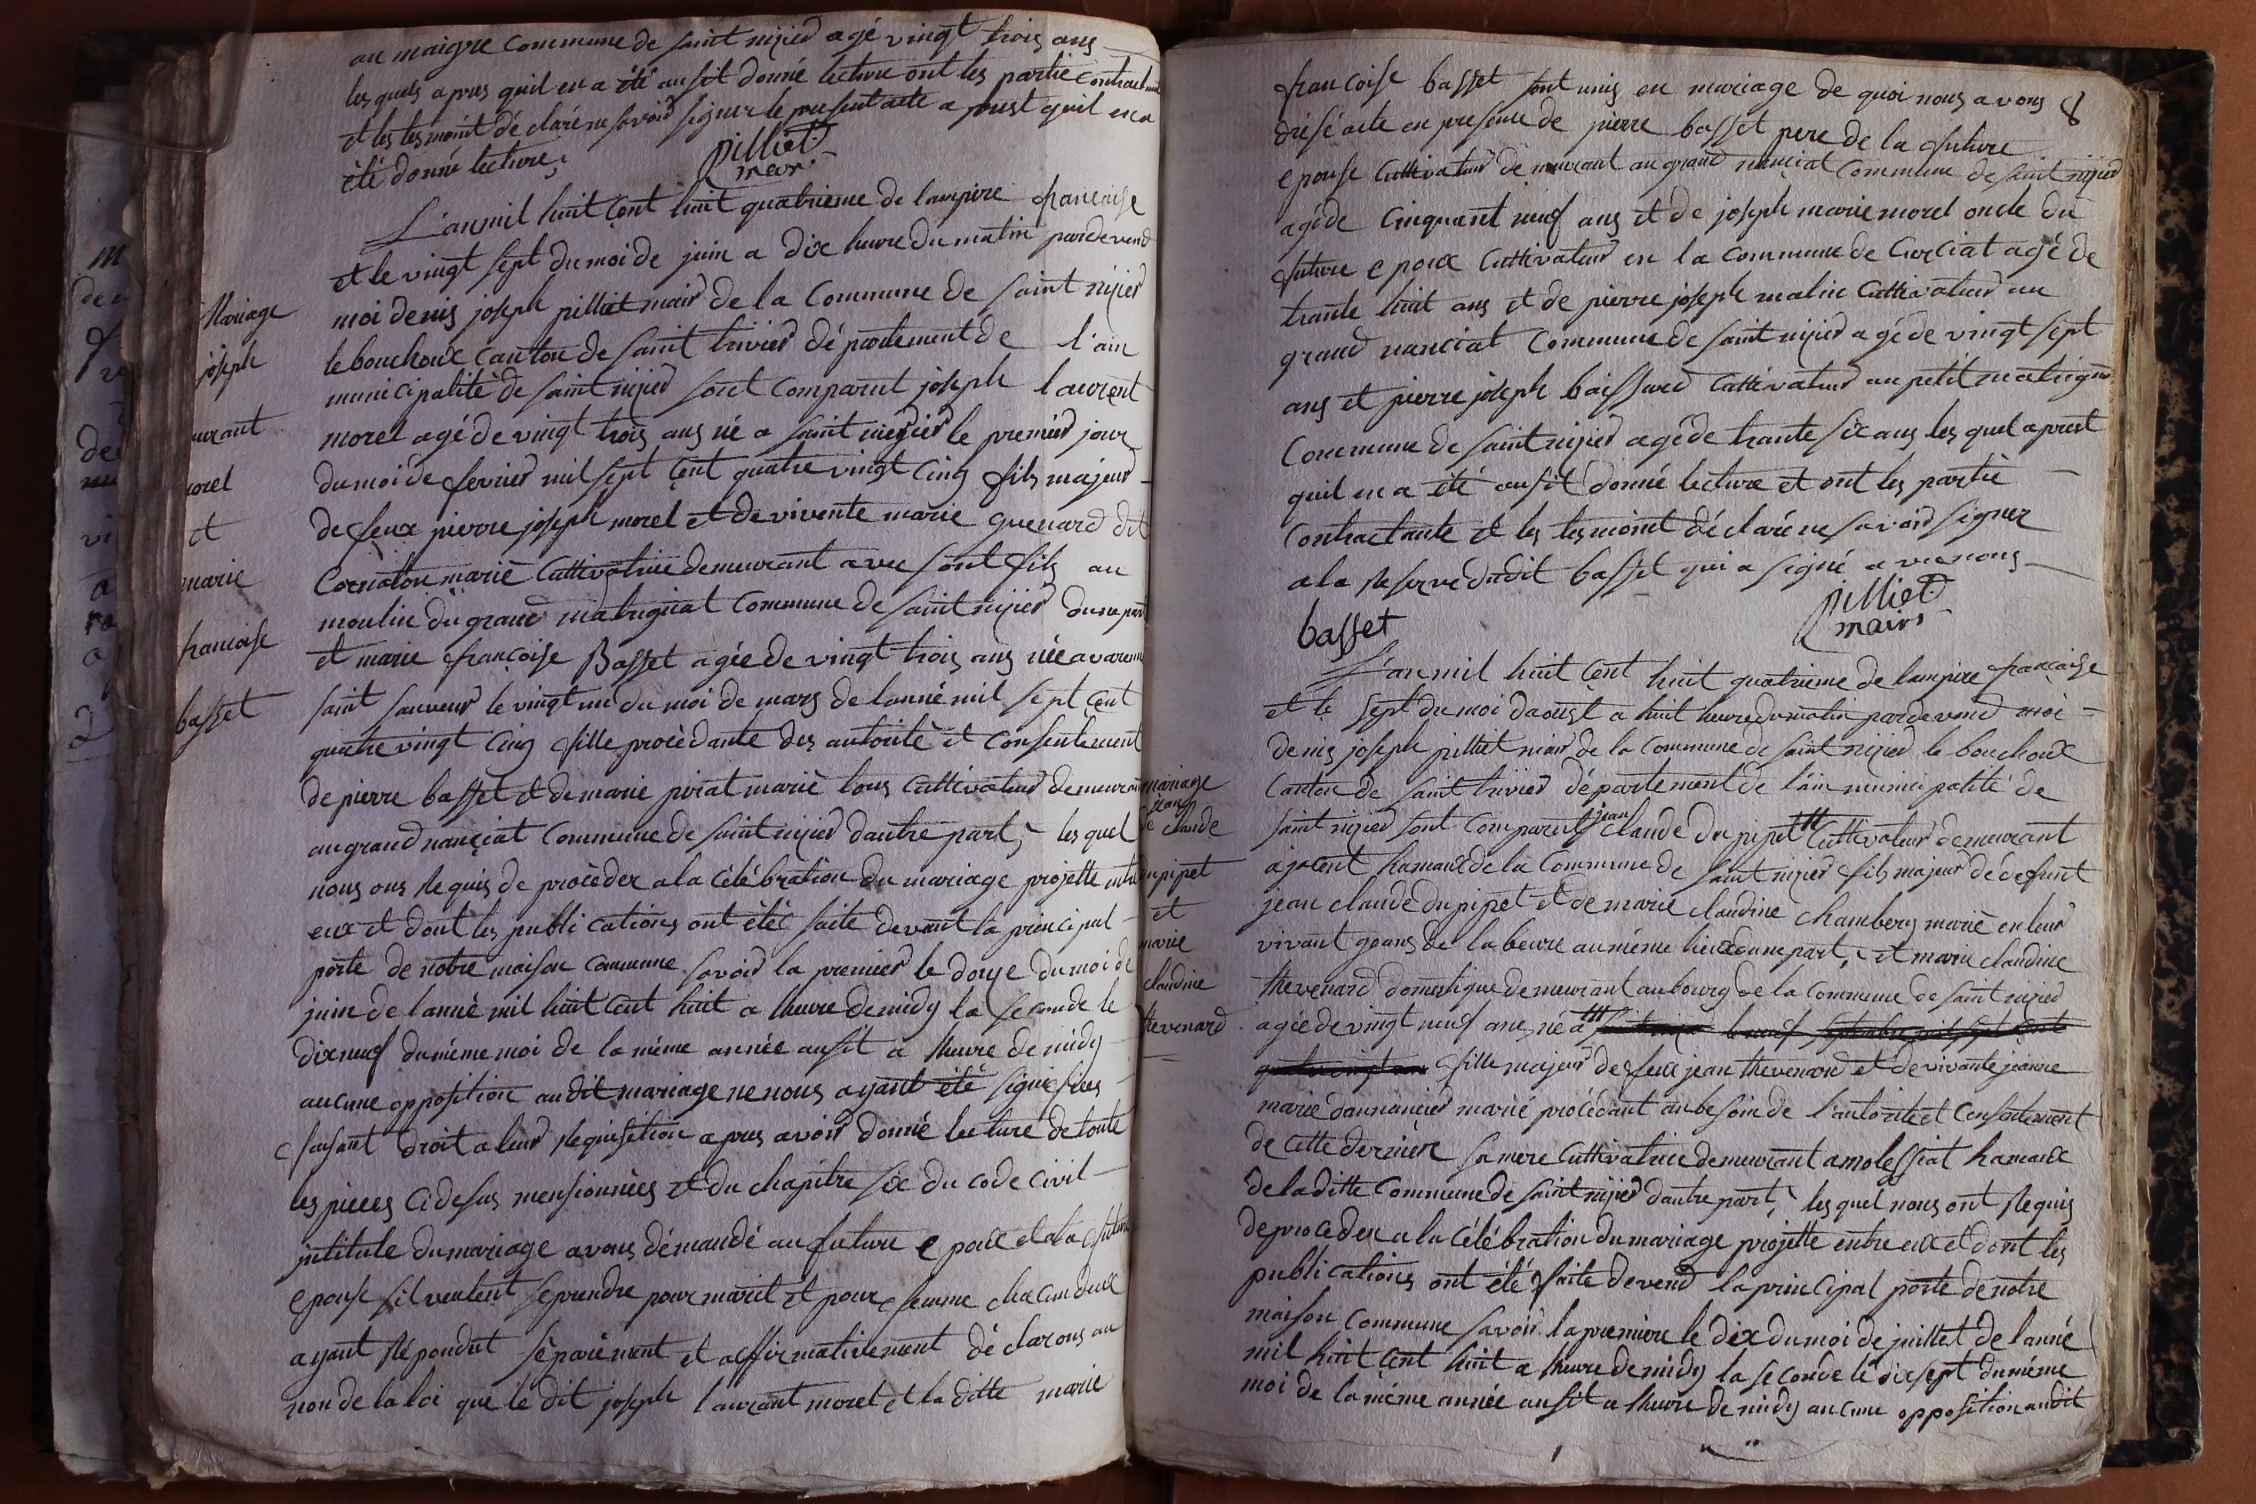 au maigre commune de saint nizier agé vingt trois ans
les quels apres quil en a été ausit donné lecture ont les partie contractante
et les tesmoint déclaré ne savoir signer le present acte aprest quil en a
été donné lecture,
pilliet
mair
L'an mil huit cent huit quatrieme de lampire francaise
et le vingt sept du moi de juin a dix heure du matin pardevend
moi denis joseph pilliet mair de la Commune de saint nizier
le bouchoux canton de saint trivier département de l'ain
municipalité de saint nizier sont comparut joseph laurent
morel agé de vingt trois ans né a saint nizier le premier jour
du moi de fevrier mil sept cent quatre vingt cinq fils majeur
de feux pierre joseph morel et de vivente marie guenard dit
Cornaton marié Cultivatrice demeurant avec sont fils au
moulin du grand matrignat commune de saint nizier dune part
et marie françoise Basset agée de vingt trois ans née a varenne
saint sauveur le vingt un du moi de mars de lanné mil sept cent
quatre vingt cinq fille procédante des autorité et consentement
de pierre basset et de marie pirat marié tous cultivateur demeurant
au grand nanciat commune de saint nizier dautre part, les quel
nous ons Requis de procèder a la célébration du mariage projetté entre
eux et dont les publications ont été faite devant la principal
porte de notre maison commune savoir la premier le douze du moi de
juin de lanné mil huit cent huit a lheure de midy la seconde le
dixneuf du méme moi de la méme année ausit a lheure de midy
aucune opposition audit mariage ne nous ayant été signifiees
faisant droit a leur Requisition apres avoir donné lecture de toute
les pieces cidesus mensionnées et du chapitre six du code civil
intitulé du mariage avons démandé au future epoux et a la future
epouse sil veulent se prendre pour marit et pour femme chacun deux
ayant Répondut séparément et affirmativement déclarons au
non de la loi que le dit joseph laurant morel et la ditte marie
Mariage
joseph
morel
et
marie
francoise
basset
8
françoise basset sont unis en mariage de quoi nous avons
drésé acte en presence de pierre basset pere de la future
epouse cultivateur demeurant au grand nanciat commune de saint nizier
agé de cinquant neuf ans et de joseph marie morel oncle du
future epoux cultivateur en la commune de Curciat agé de
trante huit ans et de pierre joseph malin cultivateur au
grand nanciat commune de saint nizier agé de vingt sept
ans et pierre joseph boissard cultivateur au petit matrignat
Commune de saint nizier agé de trante six ans les quel aprest
quil en a été ausit donné lecture et ont les partie
contractante et les tesmoint déclaré ne savoir signer
a la Reserve dudit basset qui a signé avec nous
basset
pilliet
mair
L'an mil huit cent huit quatrieme de lampire française
et le sept du moi daoust a huit heure du matin pardevend moi
denis joseph pilliet mair de la commune de saint nizier le bouchoux
Canton de saint trivier département de l'ain municipalité de
saint nizier sont comparuts jean claude dupipet cultivateur demeurant
a jacent hamaux de la commune de saint nizier fils majeur de defunt
jean claude dupipet et de marie claudine chambery marié en leur
vivant gpans de labeure au méme lieux dune part, et marie claudine
thevenard domestique demeurant au bourg de la commune de saint nizier
agée de vingt neuf ans né a
fille majeur de feux jean thevenard et de vivante jeanne
marie dannancier marié procédant au besoin de l'autorité et consentement
de cette derniere sa mere cultivatrice demeurant a molessiat hamaux
de la ditte commune de saint nizier dautre part, les quel nous ont Requis
de proceder a la célébration du mariage projetté entre eux et dont les
publications ont été faite devend la principal porte de notre
maison commune savoir la premiere le dix du moi de juillet de lanné
mil huit cent huit a lheure de midy la seconde le dixsept du méme
moi de la méme année ausit a lheure de midy aucune opposition audit
mariage
jean
claude
dupipet
et
marie
claudine
thevenard